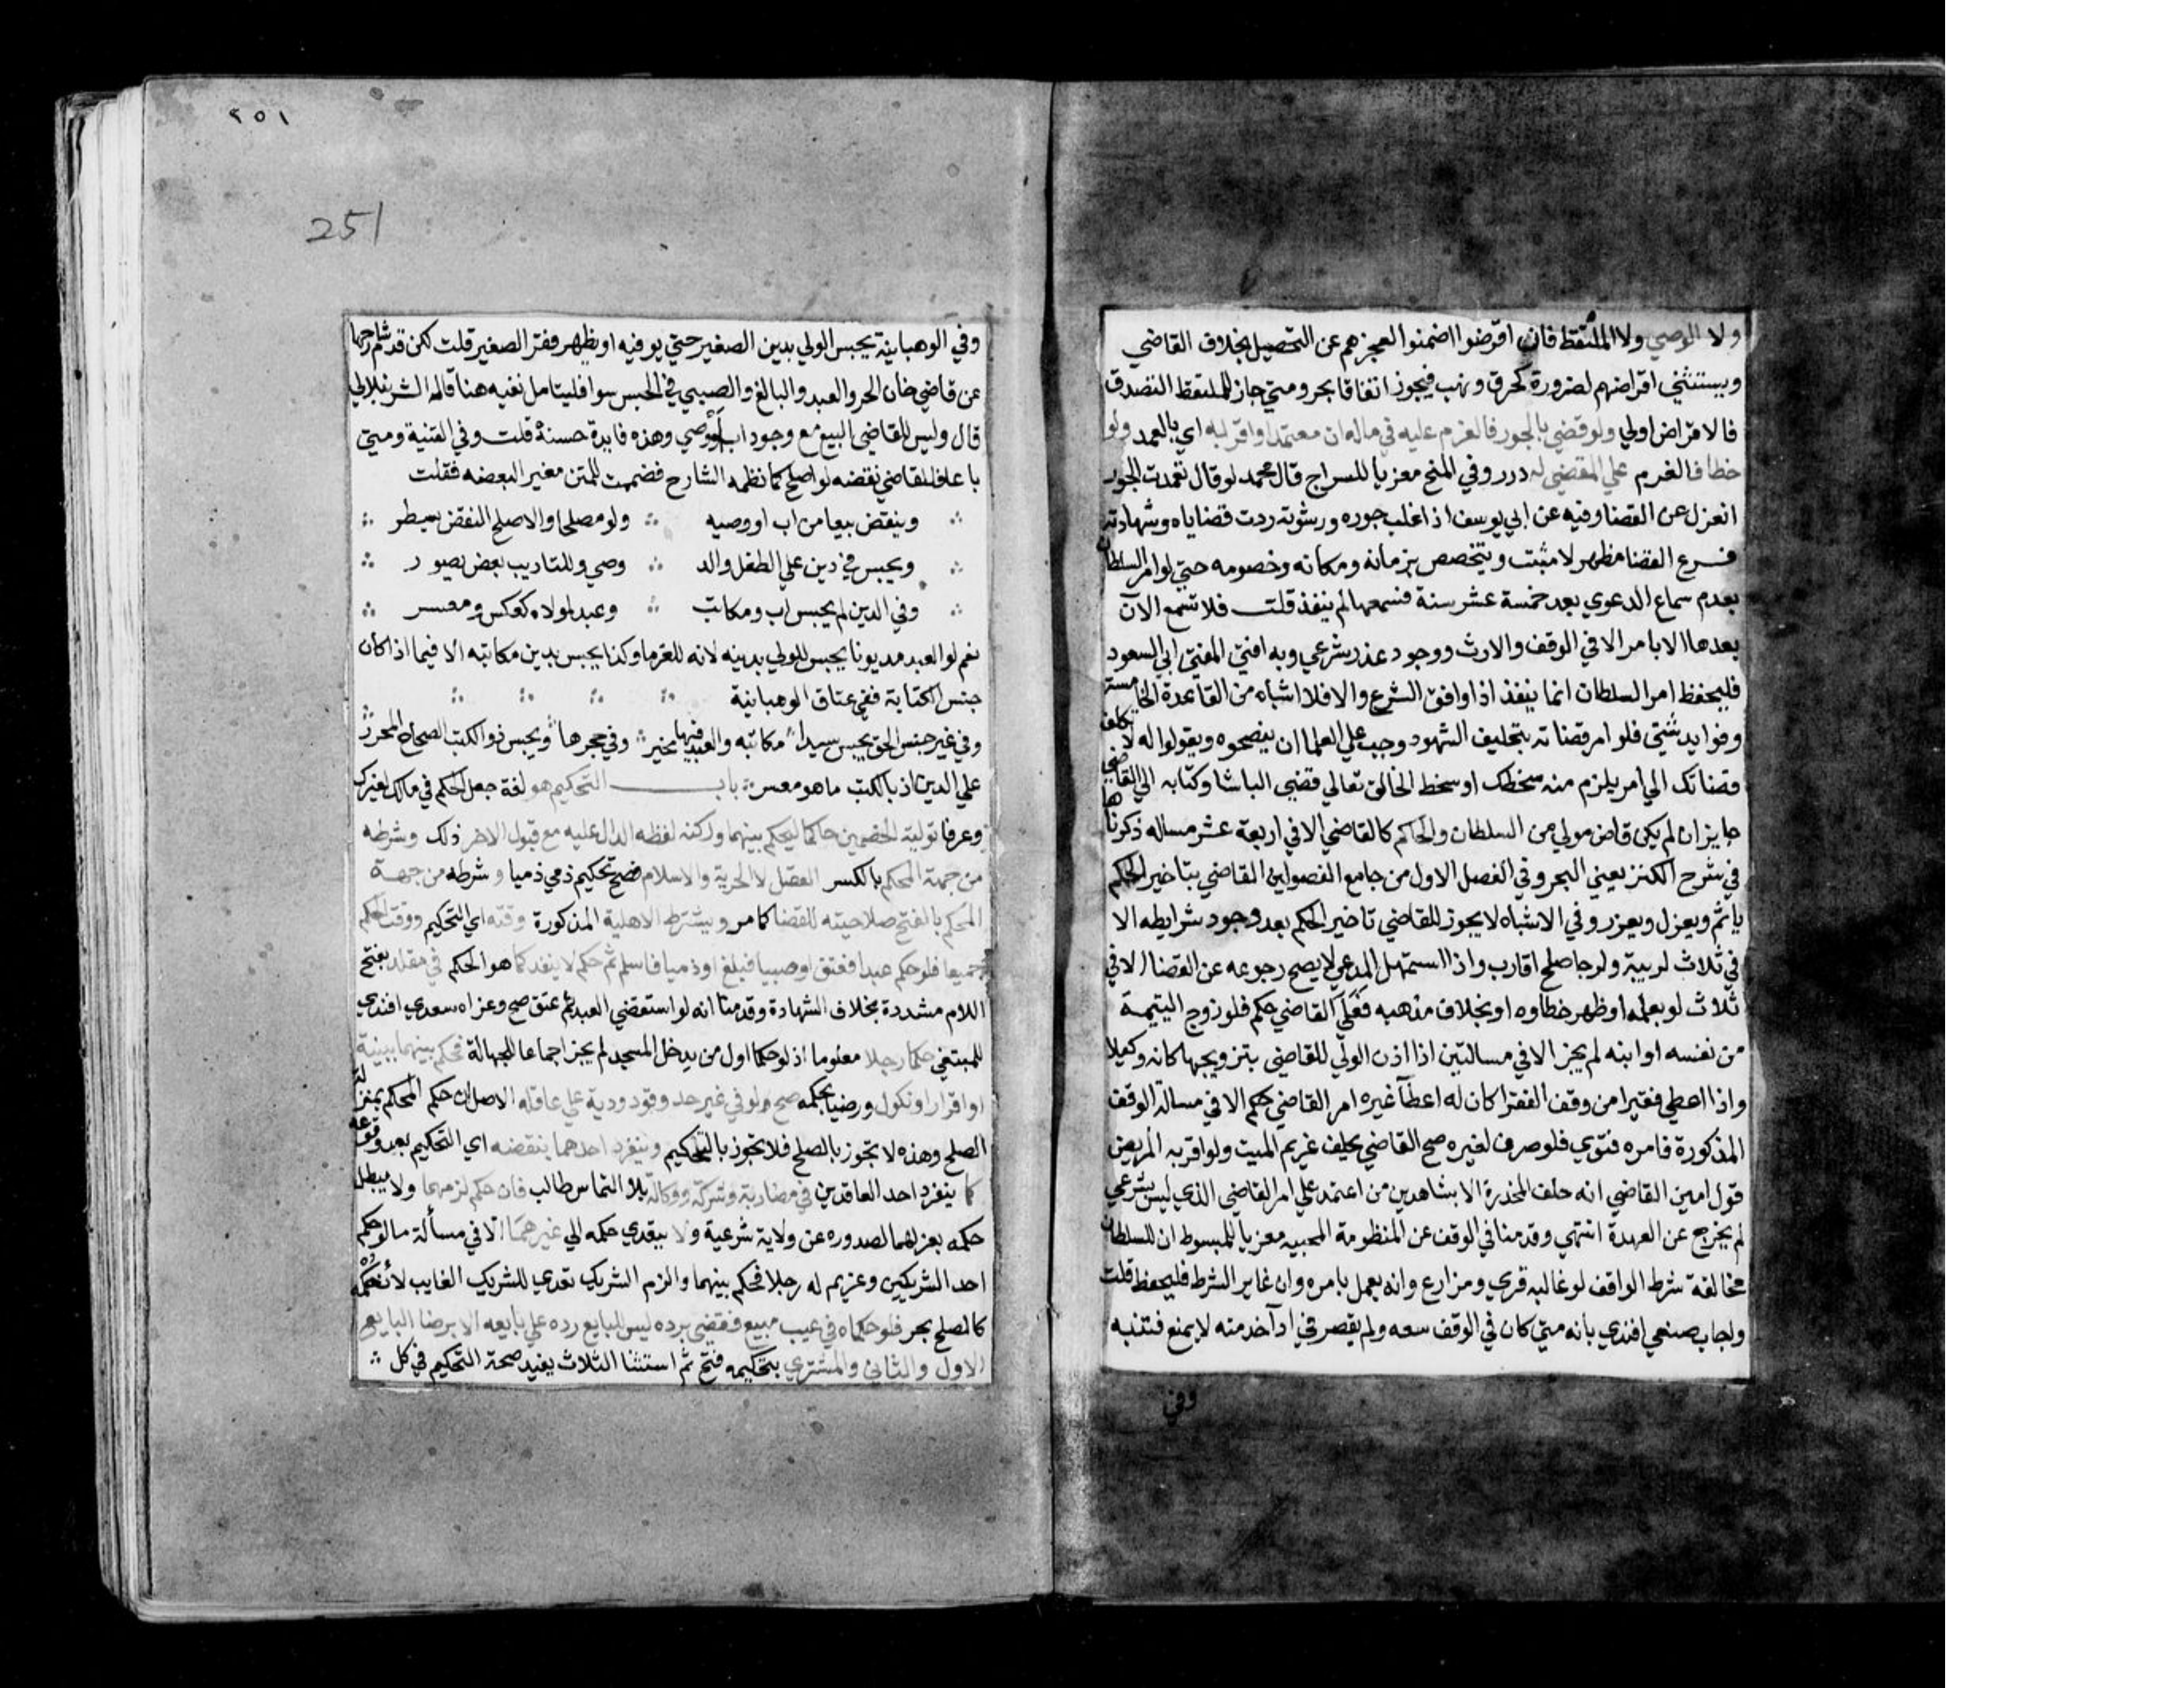 ولا الوصي ولا الملتقط فان اقرضوا ضمنوا لعجزهم عن التحصيل بخلاف القاضي
ويستثني اقراضهم لضرورة كحرق ونهب فيجوز اتفاقا بحر ومتي جاز للملتقط التصدق
فالاقراض اولي ولو قضي بالجور فالغرم عليه في ماله ان معتمدا واقر به اي بالعمد ولو
خطا فالغرم علي المقضي له درر وفي المنح معزيا للسراج قال محمد لو قال تعمدت الجور
انعزل عن القضا وفيه عن ابي يوسف اذا غلب جوره ورشوته ردت قضاياه وشهادته
فرع القضا مظهر لا مثبت ويتخصص بزمانه ومكانه وخصومه حتي لو امر السلطان
بعدم سماع الدعوي بعد خمسة عشر سنة فسمعها لم ينفذ قلت فلا تسمع الان
بعدها الا بامر الا في الوقف والارث ووجود عذر شرعي وبه افتي المفتي ابي السعود
فليحفظ امر السلطان انما ينفذ اذا وافق الشرع والا فلا اشباه من القاعدة الخامسة
وفوايد شتي فلو امر قضاته بتحليف الشهود وجب علي العلما ان ينصحوه ويقولوا له لا تكلف
قضاتك الي امر يلزم منه سخطك او سخط الخالق تعالي قضي الباشا وكتابه الي القاضي
جايز ان لم يكن قاض مولي من السلطان والحاكم كالقاضي الا في اربعة عشر مساله ذكرناها
في شرح الكنز يعني البحر وفي الفصل الاول من جامع الفصولين القاضي بتاخير الحكم
ياثم ويعزل ويعزر وفي الاشباه لا يجوز للقاضي تاخير الحكم بعد وجود شرايطه الا
في ثلاث لريبة ولرجا صلح اقارب واذا استمهل المدعي لا يصح رجوعه عن القضا الا في
ثلاث لو بعلمه او ظهر خطاوه او بخلاف مذهبه فعل القاضي حكم فلو زوج اليتيمة
من نفسه او ابنه لم يجز الا في مسالتين اذا اذن الولي للقاضي بتزويجها كانه وكيلا
واذا اعطي فقيرا من وقف الفقرا كان له اعطا غيره امر القاضي حكم الا في مسالة الوقف
المذكورة فامره فتوي فلو صرف لغيره صح القاضي يحلف غريم الميت ولو اقر به المريض
قول امين القاضي انه حلف المخدرة الا بشاهدين من اعتمد علي امر القاضي الذي ليس بشرعي
لم يخرج عن العهدة انتهي وقدمنا في الوقف عن المنظومة المحبيه معزيا للمبسوط ان للسلطان
مخالفة شرط الواقف لو غالبه قري ومزارع وانه يعمل بامره وان غاير الشرط فليحفظ قلت
واجاب صنعي افندي بانه متي كان في الوقف سعه ولم يقصر في ادا خدمته لا يمنع فتنبه
وفي
٢٥١
251
وفي الوهبانية يحبس الولي بدين الصغير حتي يوفيه او يظهر فقر الصغير قلت لكن قدم شارحها
عن قاضي خان الحر والعبد والبالغ والصبي في الحبس سوا فليتامل نفيه هنا قاله الشرنبلالي
قال وليس للقاضي البيع مع وجود اب او وصي وهذه فايدة حسنة قلت وفي القنية ومتي
باعا فللقاضي نقضه لو اصلح كما نظمه الشارح فضممت للمتن مغير البعضه فقلت
وينقض بيعا من اب او وصيه ولو مصلحا والاصلح النقض يسطر
ويحبس في دين علي الطفل والد وصي وللتاديب بعض يصور
وفي الدين لم يحبس اب ومكاتب وعبد لمولاه كعكس ومعسر
نعم لو العبد مديونا يحبس المولي بدينه لانه للغرما وكذا يحبس بدين مكاتبه الا فيما اذا كان
جنس الكتابة ففي عتاق الوهبانية
وفي غير جنس الحق يحبس سيدا مكاتبه والعبد فيها مخير وفي حجرها ويحبس ذو الكتب الصحاح المحرر
علي الدين اذ بالكتب ما هو معسر باب التحكيم هو لغة جعل الحكم في مالك لغيرك
وعرفا تولية الخصمين حاكما ليحكم بينهما وركنه لفظه الدال عليه مع قبول الاخر ذلك وشرطه
من جهة المحكم بالكسر العقل لا الحرية والاسلام فصح تحكيم ذمي ذميا وشرطه من جهة
المحكم بالفتح صلاحيته للقضا كما مر ويشترط الاهلية المذكورة وقته اي التحكيم ووقت الحكم
جميعا فلو حكم عبدا فعتق او صبيا فبلغ او ذميا فاسلم ثم حكم لا ينفد كما هو الحكم في مقلد بفتح
اللام مشددة بخلاف الشهادة وقدمنا انه لو استقضي العبد ثم عتق صح وعزاه سعدي افندي
للمبتغي حكما رجلا معلوما اذ لو حكما اول من يدخل المسجد لم يجز اجماعا للجهالة فحكم بينهما ببينة
او اقرار او نكول ورضيا بحكمه صح ولو في غير حد وقود ودية علي عاقله الاصل ان حكم المحكم بمنزلة
الصلح وهذه لا تجوز بالصلح فلا تجوز بالتحكيم وينفرد احدهما بنقضه اي التحكيم بعد وقوعه
كما ينفرد احد العاقدين في مضاربة وشركة ووكالة بلا التماس طالب فان حكم لزمهما ولا يبطل
حكمه بعزلهما لصدوره عن ولاية شرعية ولا يتعدي حكمه الي غيرهما الا في مسألة ما لو حكم
احد الشريكين وغريم له رجلا فحكم بينهما والزم الشريك تعدي للشريك الغايب لأن حكمه
كالصلح بحر فلو حكماه في عيب مبيع فقضي برده ليس للبايع رده علي بايعه الا برضا البايع
الاول والثاني والمشتري بتحكيمه فتح ثم استثنا الثلاث يفيد صحة التحكيم في كل